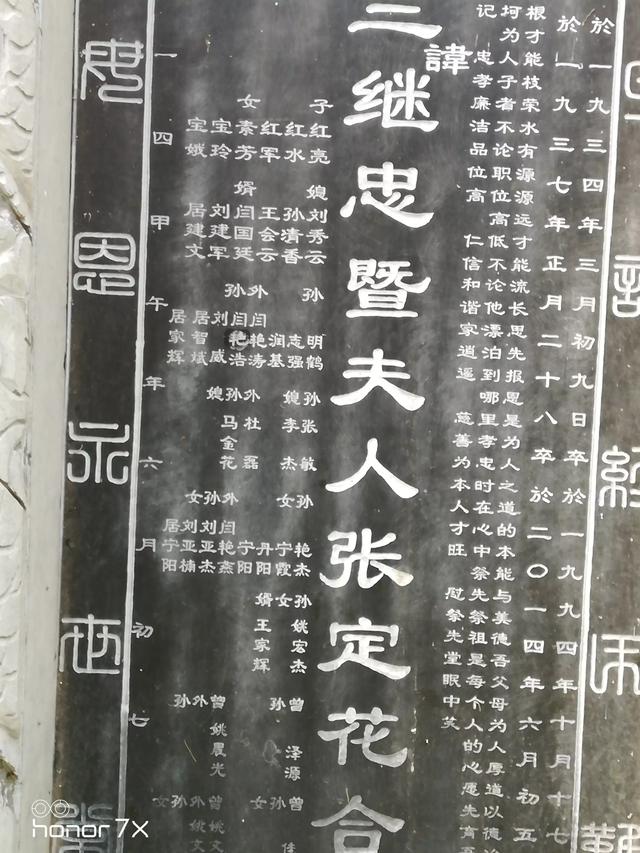 於一九三四年三月初九日卒於一九九四年十月十七
於一九三七年正月二十八卒於二〇一四年六月初五
根才能枝荣水有源源远才能流长思先报恩是为人之道的本能与美德吾父母为人厚道以德
坷为人子者不论职位高低不论他漂泊到哪里孝忠时在心中祭先祭祖是每个人的心愿先育
记 忠孝廉洁品位高 仁信和谐家逍遥 慈善为本人才旺 慰祭先堂眠中笑
諱
二继忠暨夫人张定花合
子 红亮 媳 刘秀云
红水 孙清香
红军 王会云
女 素芳 婿 闫国廷
宝玲 刘建军
宝娥 居建文
孙 明鹤
志强
润基
外孙 闫艳涛
闫艳浩
刘威
居智斌
居家辉
孙媳 张敏
李杰
外孙媳 杜磊
马金花
孙女 艳杰
宁霞
丹阳
宁阳
外孙女 闫艳燕
刘亚杰
刘亚楠
居宁阳
孙女婿 姚宏杰
王家辉
曾孙 泽源
曾外孙 姚晨光
曾孙女 佳
曾外孙女 姚文
一四甲午年六月初七
恩